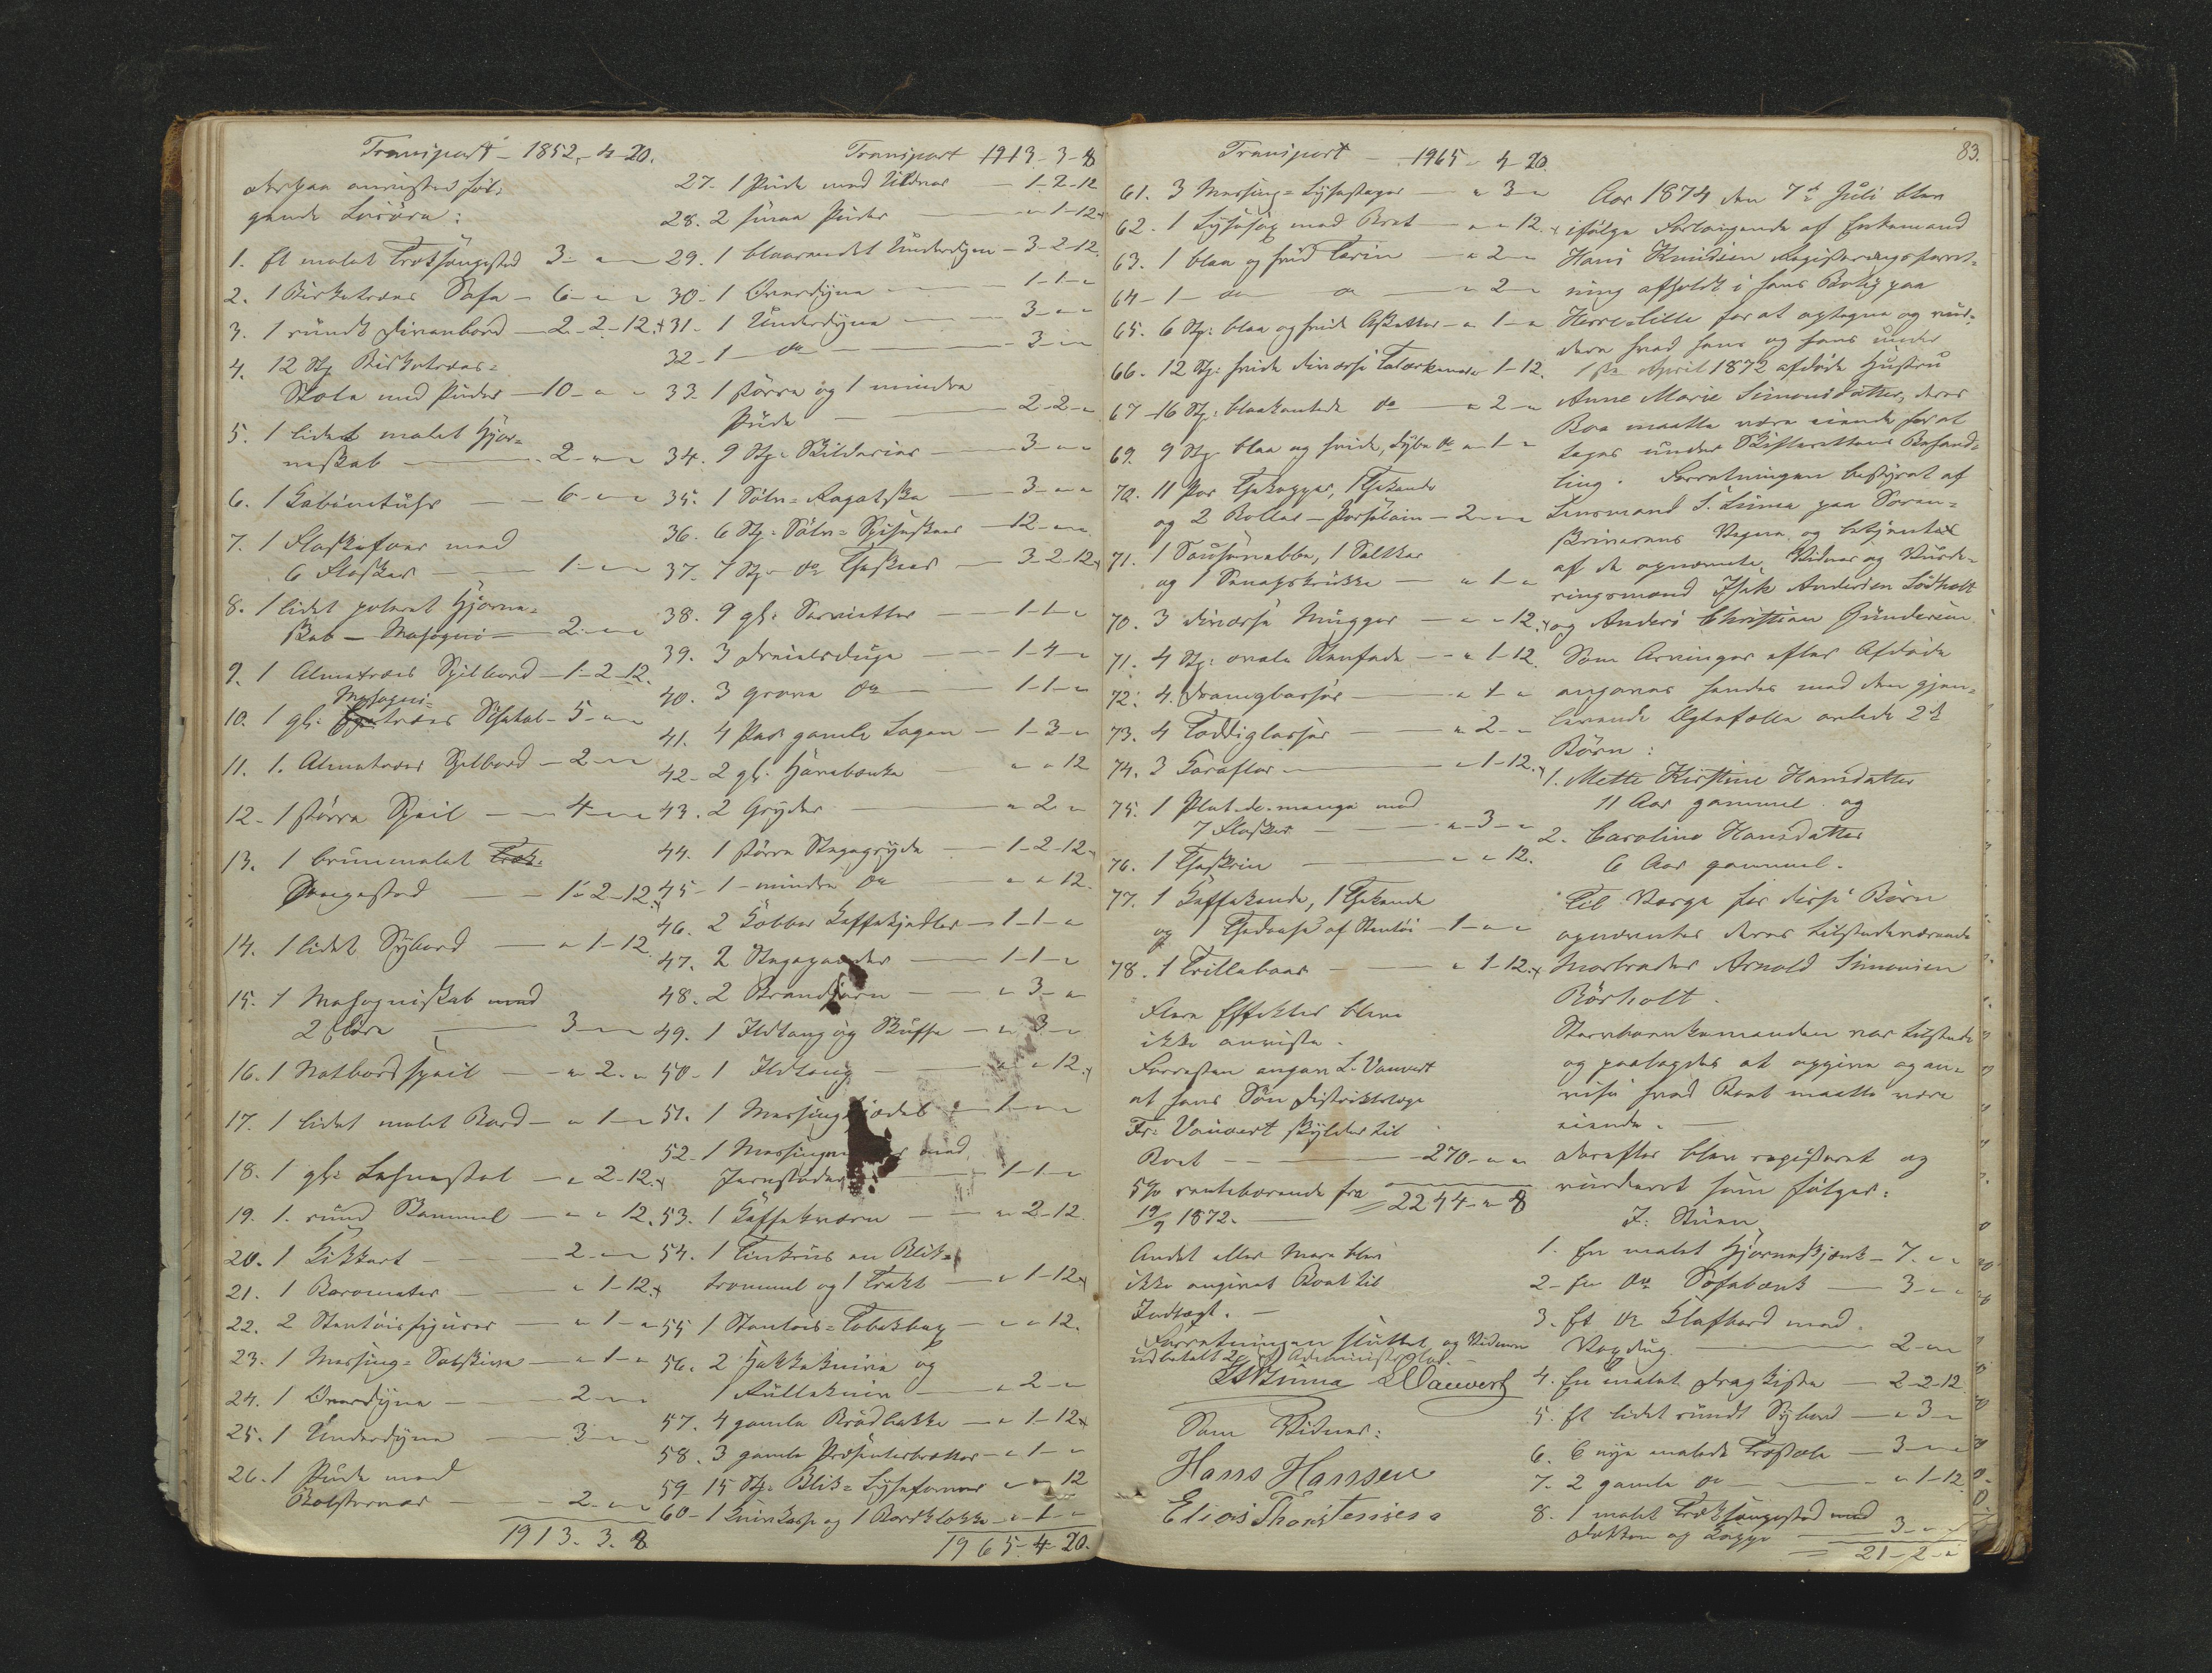 Transport - 1852 - 4 - 20.
derpaa anvistes føl-
gende Løsøre:
1. Et malet Træksængested 3 - " - "
2. 1 Birketræes Sofa - 6 - " - "
3. 1 rundt Divanbord - 2 - 2 - 12.
4. 12 Stk. Birketræes-
Stole med Puder - 10 - " - "
5. 1 lidet malet Hjør-
neskab - 2 - " - "
6. 1 Kabinetuhr - 6 - " - "
7. 1 Flaskefoer med
6 Flasker - 1 - " - "
8. 1 lidet poleret Hjørne-
skab - Mahogni - 2 - " - "
9. 1 Almetræes Spilbord - 1 - 2 - 12.
Mahogni-
10. 1 gl. træes - 5 - " - "
11. 1. Almetræes Spilbord - 2 - " - "
12. 1 større Speil - 4 - " - "
13. 1 brunmalet Træk-
Sængested - 1 - 2 - 12.
14. 1 lidet Sybord - " - 1 - 12.
15. 1 Mahogniskab med
2 Døre - 3 - " - "
16. 1 Natbordspeil - " - 2 - "
17. 1 lidet malet Bord - " - 1 - "
18. 1 gl. Lehnestol - " - 2 - 12.
19. 1. rund Skammel - " - " 12.
20. 1 Kikkert - 2 - " - "
21. 1 Barometer - " - 1 - 12.
22. 2 Stentøisfigurer - " - 1 - "
23. 1 Messing- - " - 1 - "
24. 1 Overdyne - 2 - " - "
25. 1 Underdyne - 3 - " - "
26. 1 Pude med
Bolstervar - 2 - " - "
1913. 3. 8
Transport 1913 - 3 - 8
27. 1 Pude med Uldvar - 1 - 2 - 12
28. 2 smaa Puder - " - 1 - 12
29. 1 blaarandet Underdyne - 3 - 2 - 12.
30. 1 Overdyne - 1 - 1 - "
31. 1 Underdyne - 3 - " - "
32. 1 do - 3 - " - "
33. 1 større og 1 mindre
Pude - 2 - 2 - "
34. 9 Stk. Skilderier - 3 - " - "
35. 1 Sølv-Ragatske - 3 - " - "
36. 6 Stk. Sølv-Spiseskeer - 12 - " - "
37. 7 Stk. do Theskeer - 3 - 2 - 12
38. 9 gl. Servietter - 1 - 1 - "
39. 3 Dreielsduge - 1 - 4 - "
40. 3 grove do - 1 - 1 - "
41. 4 Par gamle Lagen - 1 - 3 - "
42. 2 gl. - " - " 12
43. 2 Gryder - " - 2 - "
44. 1 større Stegegryde - 1 - 2 - 12
45. 1 - mindre do - " - " 12.
46. 2 Kobber Kaffekjedler - 1 - 1 - "
47. 2 Stegepander - 1 - 1 - "
48. 2 Brandjern - " - 3 - "
49. 1 Ildtang og Skuffe - " - 3 - "
50. 1 Ildtang - " - " 12.
51. 1 Messingkjedel - 1 - " - "
52. 1 med
- 1 - 1 - "
53. 1 Kaffekværn - " - 2 - 12
54. 1 Tinkrus en Blik-
trommel og 1 Trakt - " - 1 - 12
55. 1 Stentøis-Tobaksbox - " - " 12.
56. 2 Hakkeknive og
1 Rulleknive - " - 2 - "
57. 4 gamle Brødbakke - " - 1 - 12
58. 3 gamle Præsenterbretter - " - 1 - "
59. 15 Stk. Blik-Lyseformer " - " 12
60. 1 Knivkasse og 1 Bordklokke - " - 1 - "
1965 - 4 - 20.
83.
Transport - 1965 - 4 - 20.
61. 3 Messing-Lysestager - " 3 - "
62. 1 Lysesax med Bret - " - " 12.
63. 1 blaa og hvid Terin - " 2 - "
64. 1 - do do - " 2 - "
65. 6 Stk. blaa og hvide Asietter - " 1 - "
66. 12 Stk. hvide diverse Talærkener 1 - 12.
67. 16 Stk. blaakantede do - " 2 - "
69. 9 Stk. blaa og hvide, dybe do - " - 1 - "
70. 11 Par Thekopper, 1 Thekande
og 2 Boller - Porselain - 2 - " - "
71. 1 Sausenebbe, 1 Saltkar
og 1 Senopskrukke - " 1 - "
70. 3 diverse Mugger - " - " 12.
71. 4 Stk. ovale Stenfade - " 1 - 12.
72. 4. Dramglasser - " 1 - "
73. 4 Toddiglasser - " 2 - "
74. 3 Karafler - " 1 - 12.
75. 1 Plat-de-menage med
7 Flasker - " - 3 - "
76. 1 Theskrin - " - " 12.
77. 1 Kaffekande, 1 Thekande
og 1 Thedaase af Stentøi - 1 - " - "
78. 1 Trillebaar - " 1 - 12.
Flere Effekter blev
ikke anviste.
Forresten angav L. Vauvert
at hans Søn Distriktslæge
Fr. Vauvert skylder til
Boet - 270 - " - "
5% rentebærende fra
19/9 1872. = 2244 - " - 8
Andet eller Mere blev
ikke angivet Boet til
Indtægt. -
Forretningen sluttet og Vidnerne
udbetalt
L Vauvert
Som Vidner:
Hans Hansen
Elias Thorstensen
Aar 1874 den 7de Juli blev
ifølge Forlangende af Enkemand
Hans Knudsen Registreringsforret-
ning afholdt i hans Bolig paa
Herre-Tille for at optegne og vur-
dere hvad hans og hans under
1ste April 1872 afdøde Hustru
Anne Marie Simonsdatter, deres
Boe maatte være eiende, for at
tages under Skifterettens Behand-
ling. Forretningen bestyret af
Lensmand paa Soren-
skriverens Vegne, og betjentes
af de opnævnte Vidner og Vurde-
ringsmænd Isak Andersen Lødholt
og Anders Christian Gundersen.
Som Arvinger efter Afdøde
angaves hendes med den gjen-
levende Ægtefælle avlede 2de
Børn:
1. Mette Kirstine Hansdatter
11 Aar gammel og
2. Caroline Hansdatter
6 Aar gammel.
Til Værge for disse Børn
opnævntes deres tilstedeværende
Morbroder Arnold Simonsen
Rørholt.
Stervboenkemanden var tilstede
og paalagdes at opgive og an-
vise hvad Boet maatte være
eiende. -
Derefter blev registreret og
vurderet som følger:
I: Stuen
1. En malet Hjørneskjænk - 7. " "
2. En do Sofabænk - 3 - " "
3. Et do Klafbord med
Voxdug. - 2 - "
4. En malet Dragkiste - 2 - 2 - 12
5. Et lidet rundt Sybord - " 3 - "
6. 6 nye malede Træstole - 3 - " "
7. 2 gamle do - " 1 - 12.
8. 1 malet Træksængested med
Dækken og Kappe 3 - "
= 21 - 2 - "